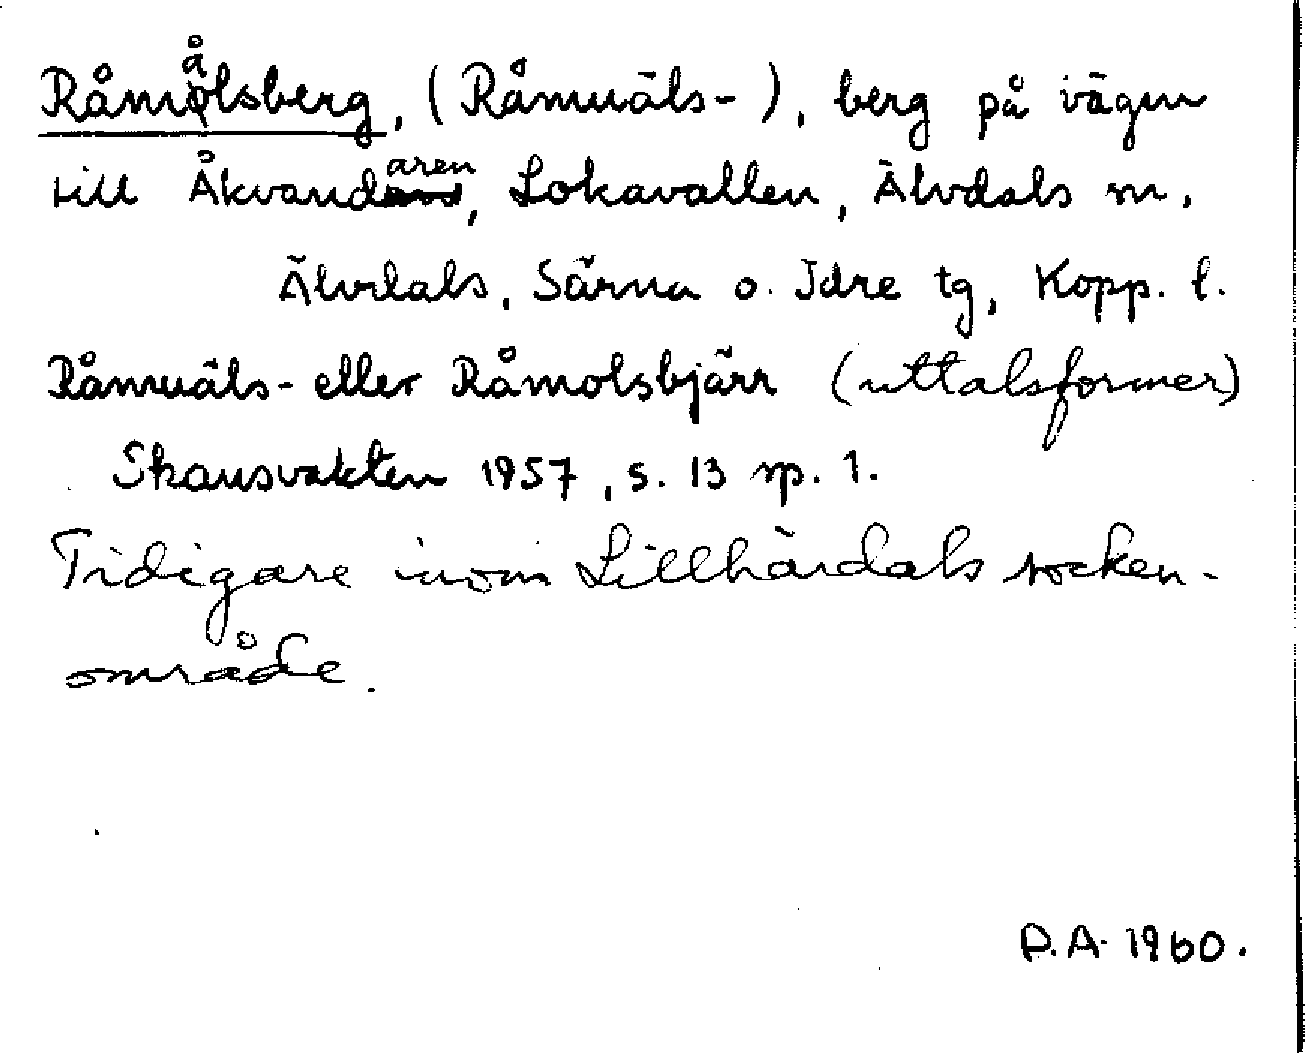 Råmålsberg, (Råmuäls-), berg på vägen
till Åkvandaren, Lokavallen, Älvdals sn.
Älvdals, Särna o. Idre tg, Kopp. l.
Råmuäls- eller Råmolsbjärr (uttalsformer)
Skansvakten 1957, s. 13 sp. 1.
Tidigare inom Lillhärdals socken-
område.
D.A. 1960.